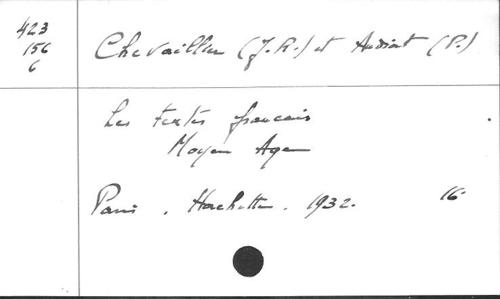 423
156
6
Chevaillier (J.R.) et Audiat (P.)
Les textes français
Moyen Age
Paris. Hachette. 1932. 16°